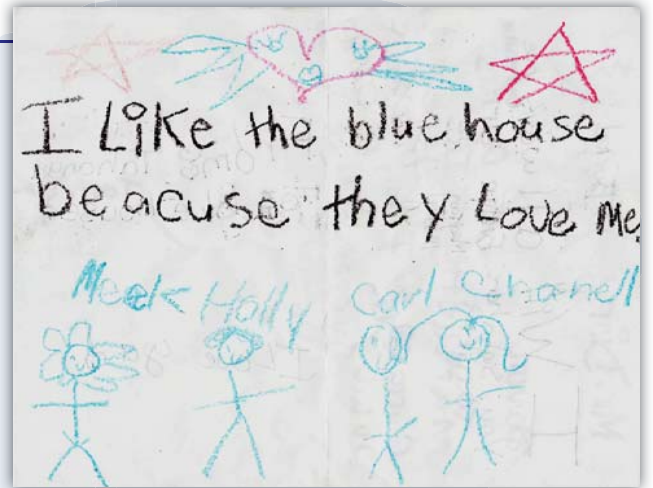 I Like the blue house
beacuse they Love Me.
Meek Holly Carl Chanell